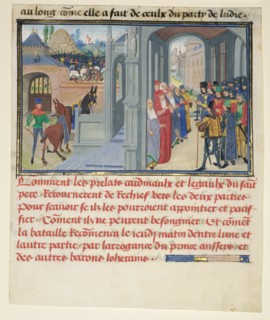 au long cõme elle a fait de ceulx du party de ludie.
Comment les prelats cardinaulx et legaulx du saint
pere Retournerent de rechief vers les deux parties
Pour scavoir se ilz les pourroient appointier et paci
fier. Cõment ilz ne peurent besongnier. Et cõmẽt
la bataille Recõmença le ieudj matin dentre lune et
lautre partie par larrogance du prince anssers et
des autres barons loherains.